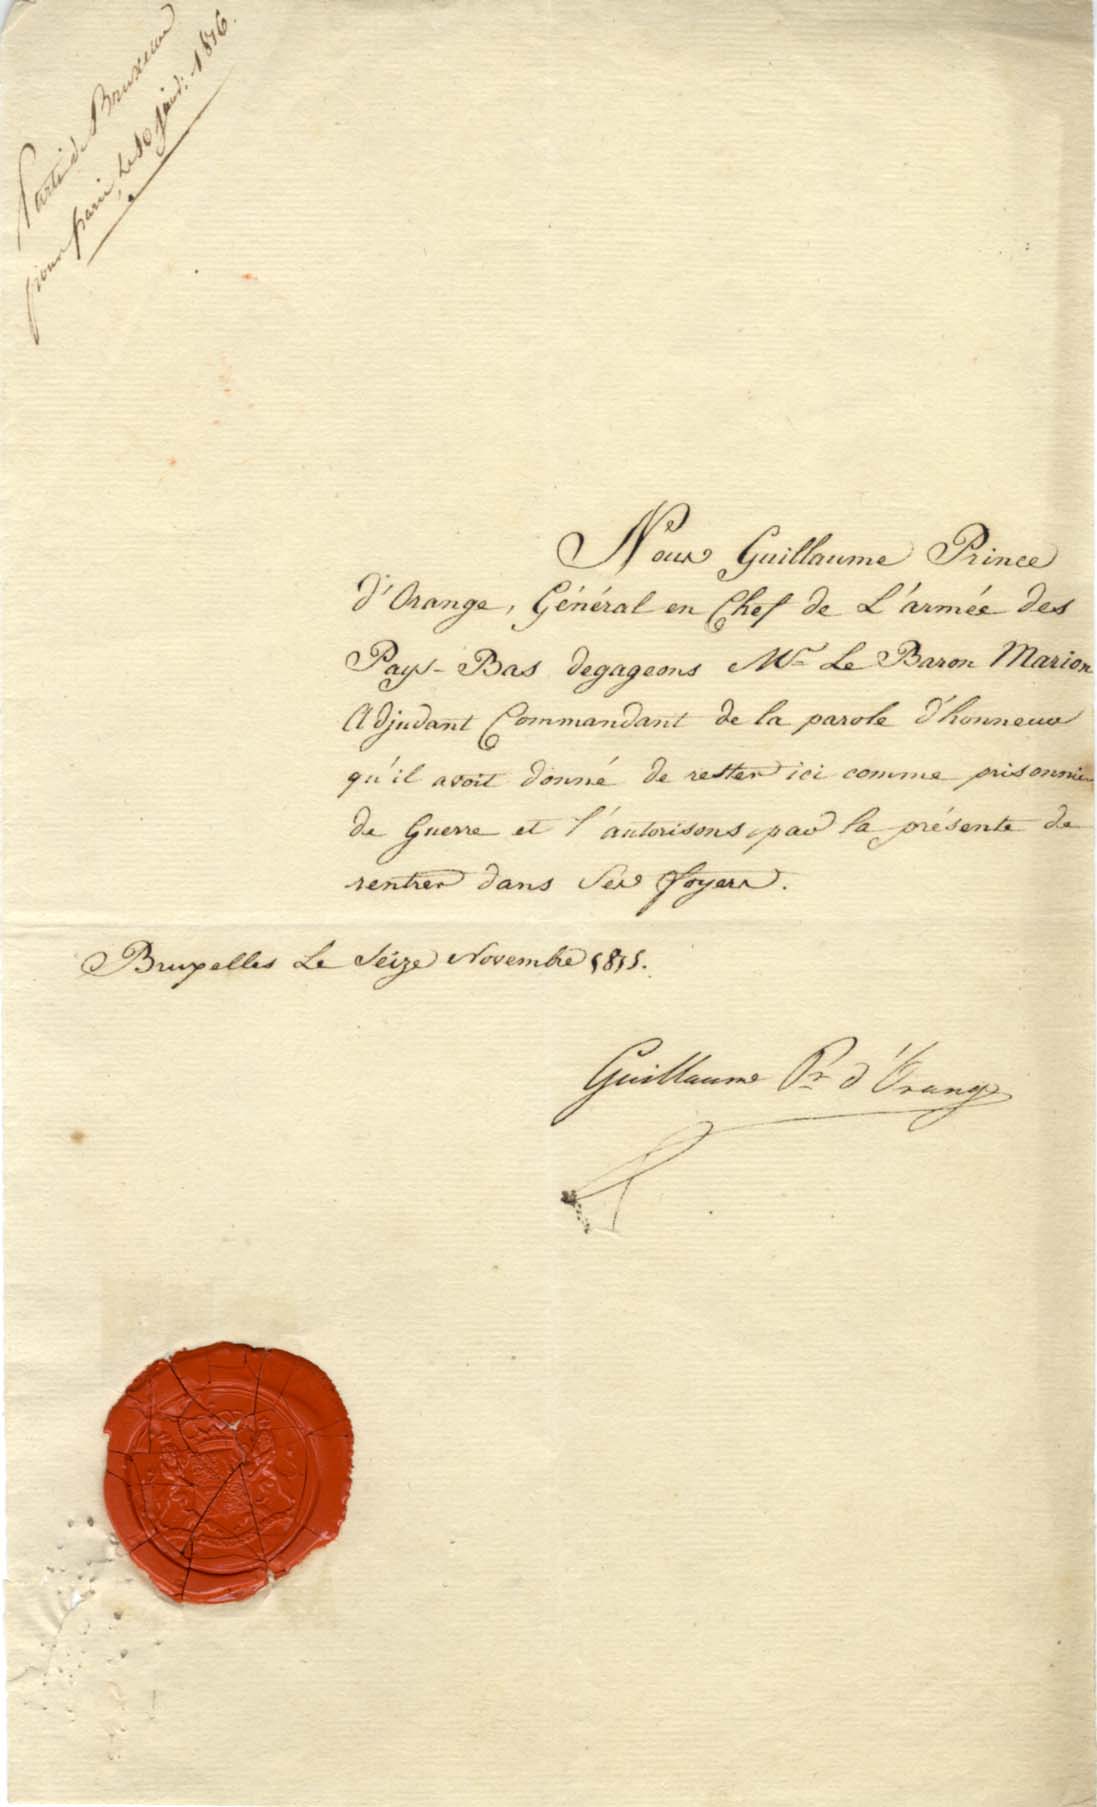 Parti de Bruxelles
pour paris, le 10 janv: 1816.
Nous Guillaume Prince
d'Orange, Général en Chef de L'armée des
Pays-Bas degageons Mr Le Baron Marion
Adjudant Commandant de la parole d'honneur
qu'il avoit donné de rester ici comme prisonnier
de Guerre et l'autorisons par la présente de
rentrer dans Ses foyers.
Bruxelles Le Seize Novembre 1815.
Guillaume Pr d'Orange